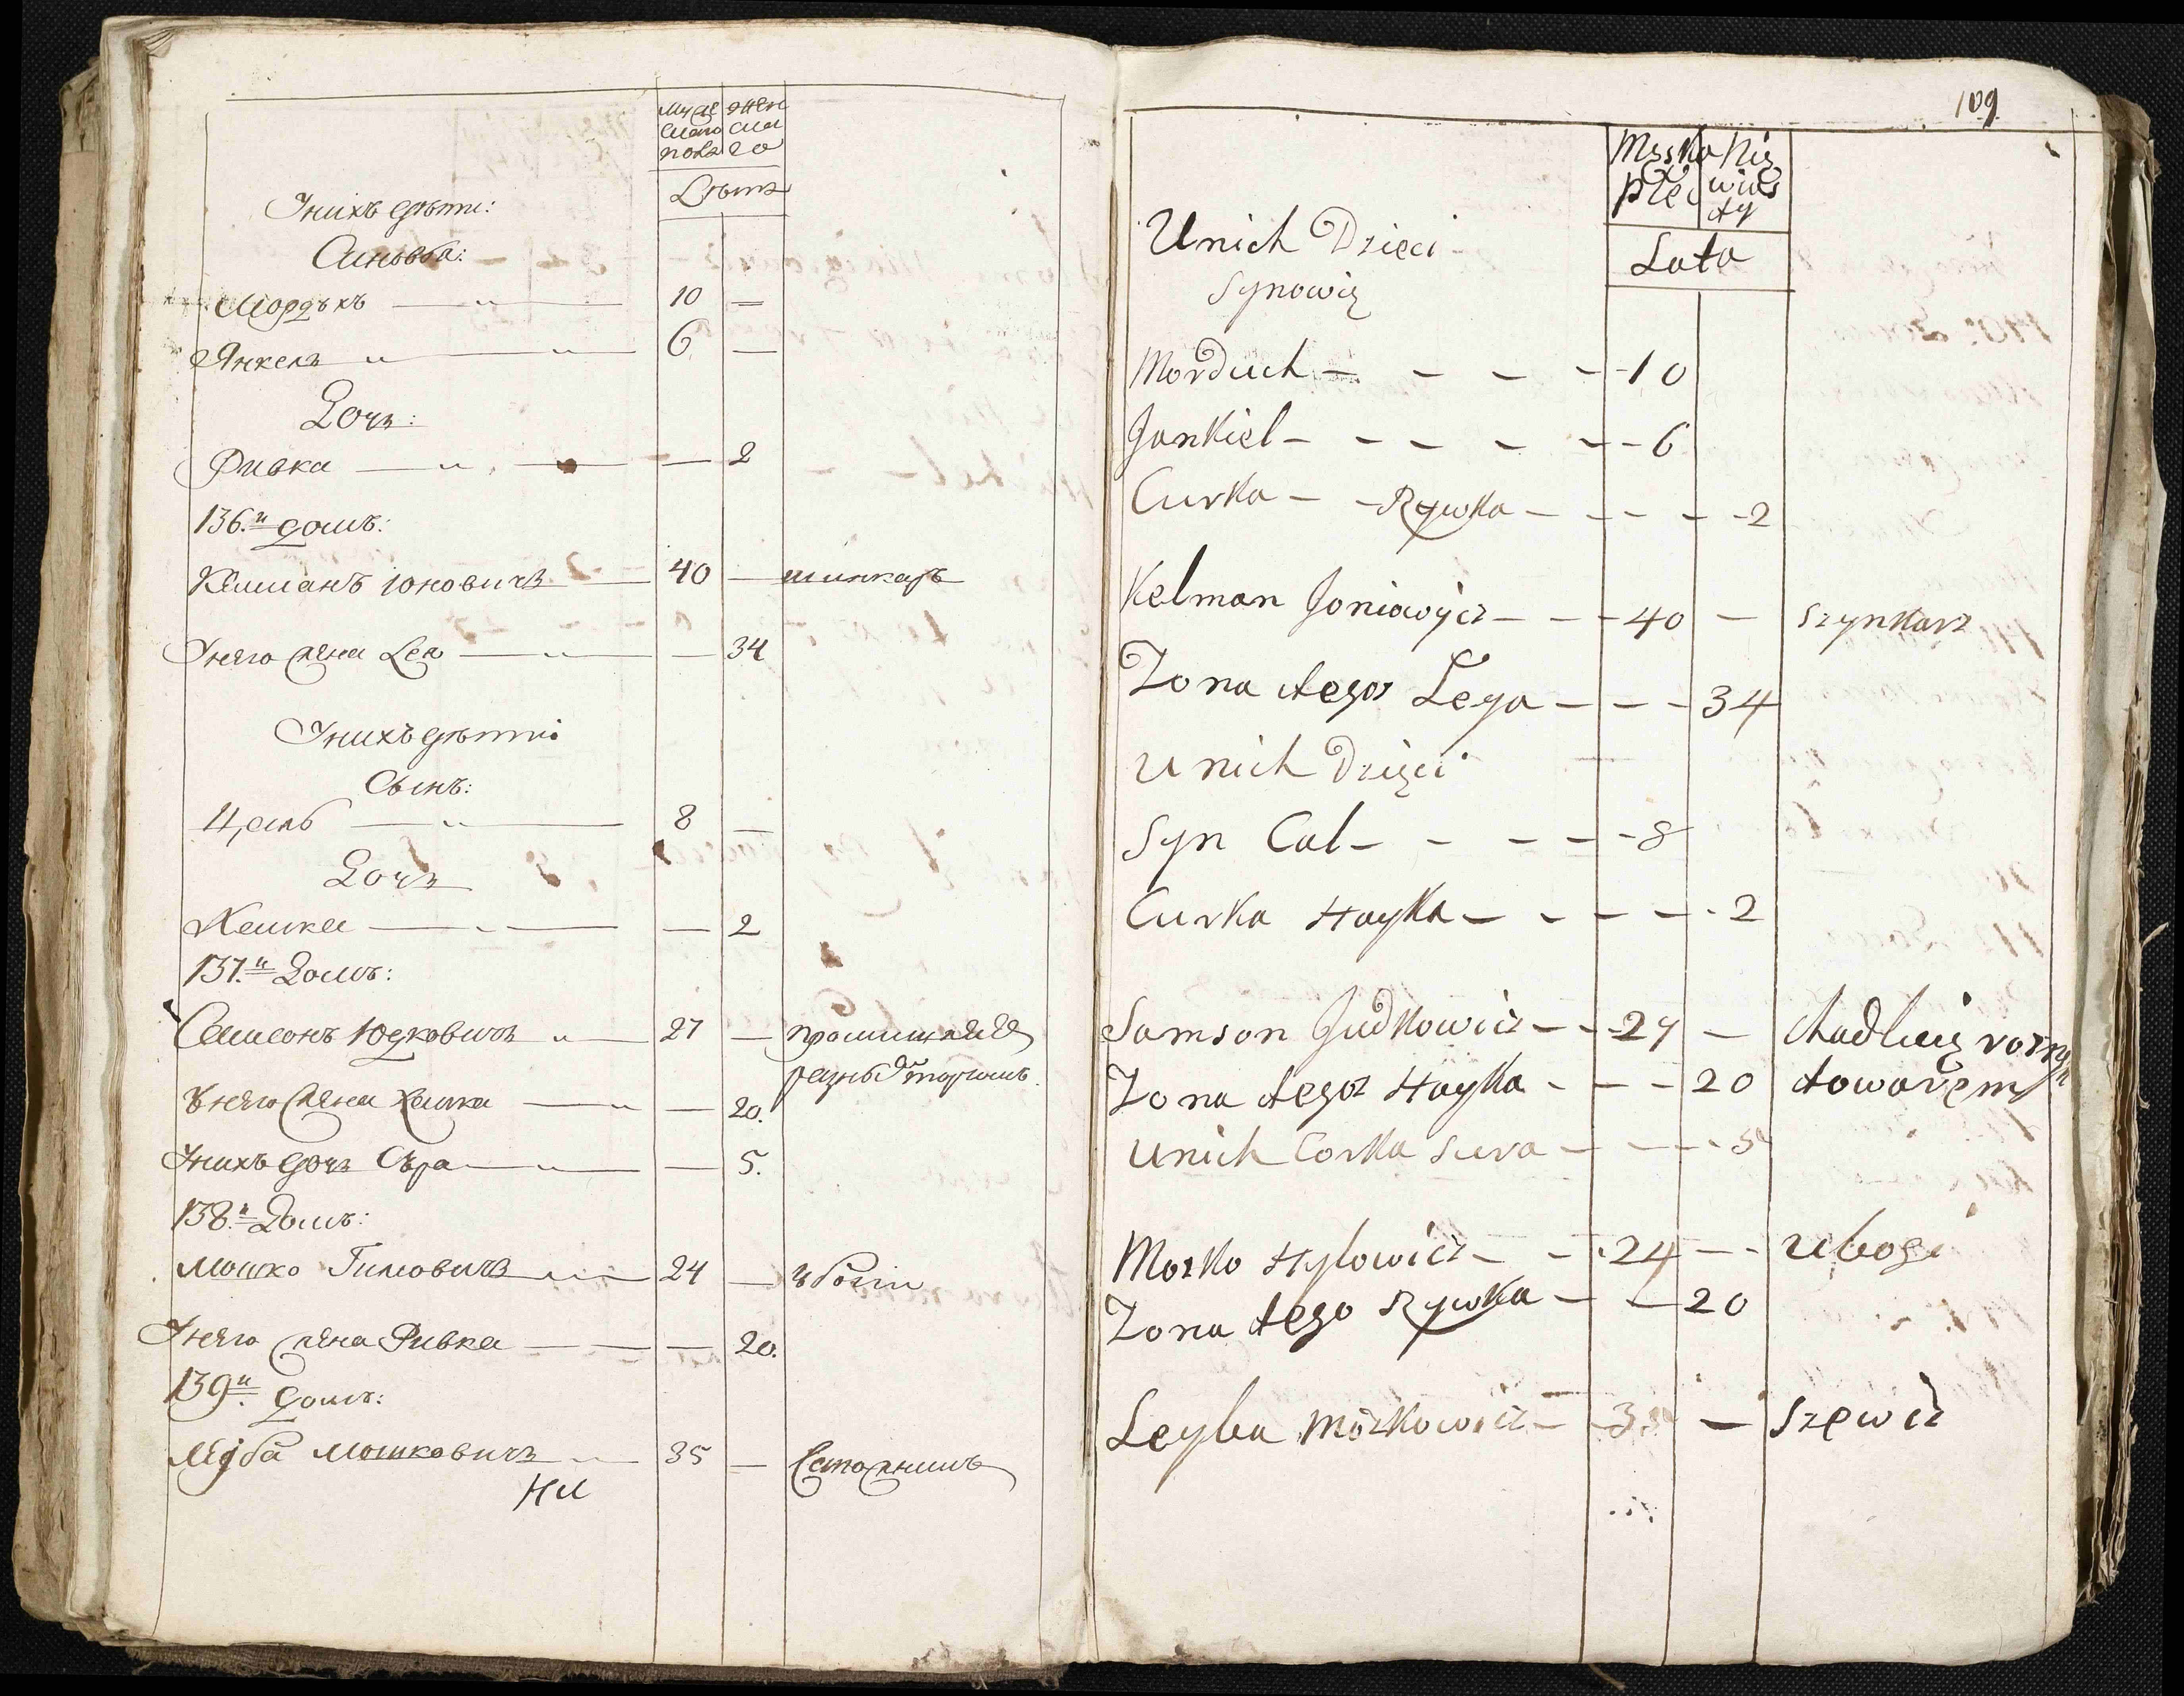 муже жен
скаго ска
полъ го
Лѣта
Унихъ дѣти:
Синовья:
Мордухъ — „ — 10 —
Янкель „ — „ — 6 —
Дочь:
Ривка — „ — — 2
136.й домъ:
Келманъ Юновичъ — 40 — шинкарь
Унего жена Лея — „ — — 34
Унихъ дѣти
Сынъ:
Цаль — „ — 8 —
Дочь
Хайка — — — 2
137.й Домъ:
Самсонъ Юдковичъ „ — 27 — промишляе
разныем торгомъ.
Унего жена Хайка — „ — 20.
Унихъ дочь Сура — „ — — 5.
138.й Домъ:
Мошко Гиловичъ — 24 — убогiи
Унего жена Ривка — — — 20.
139й. домъ:
Лейба Мошковичъ „ 35 —
109
Męska Nie
płeć wias
ty
Lata
Unich Dzieci
Synowie
Morduch — — — — 10
Jankiel — — — — — 6
Curka — Rywka — — — — 2
Kelman Joniowicz — — 40 — szynkarz
Zona tegoz Leya — — — 34
Unich Dzieci
Syn Cal — — — — 8
Curka Hayka — — — — 2
Samson Judkowicz — — 27 — handluie roznym
Zona tegoz Hayka — — — 20 towarem
Unich Corka Sura — — — 5
Moszko Hylowicz — — 24 — — Ubogi
Zona tego Rywka — — 20
Leyba Moszkowicz — 35 — Szewcz